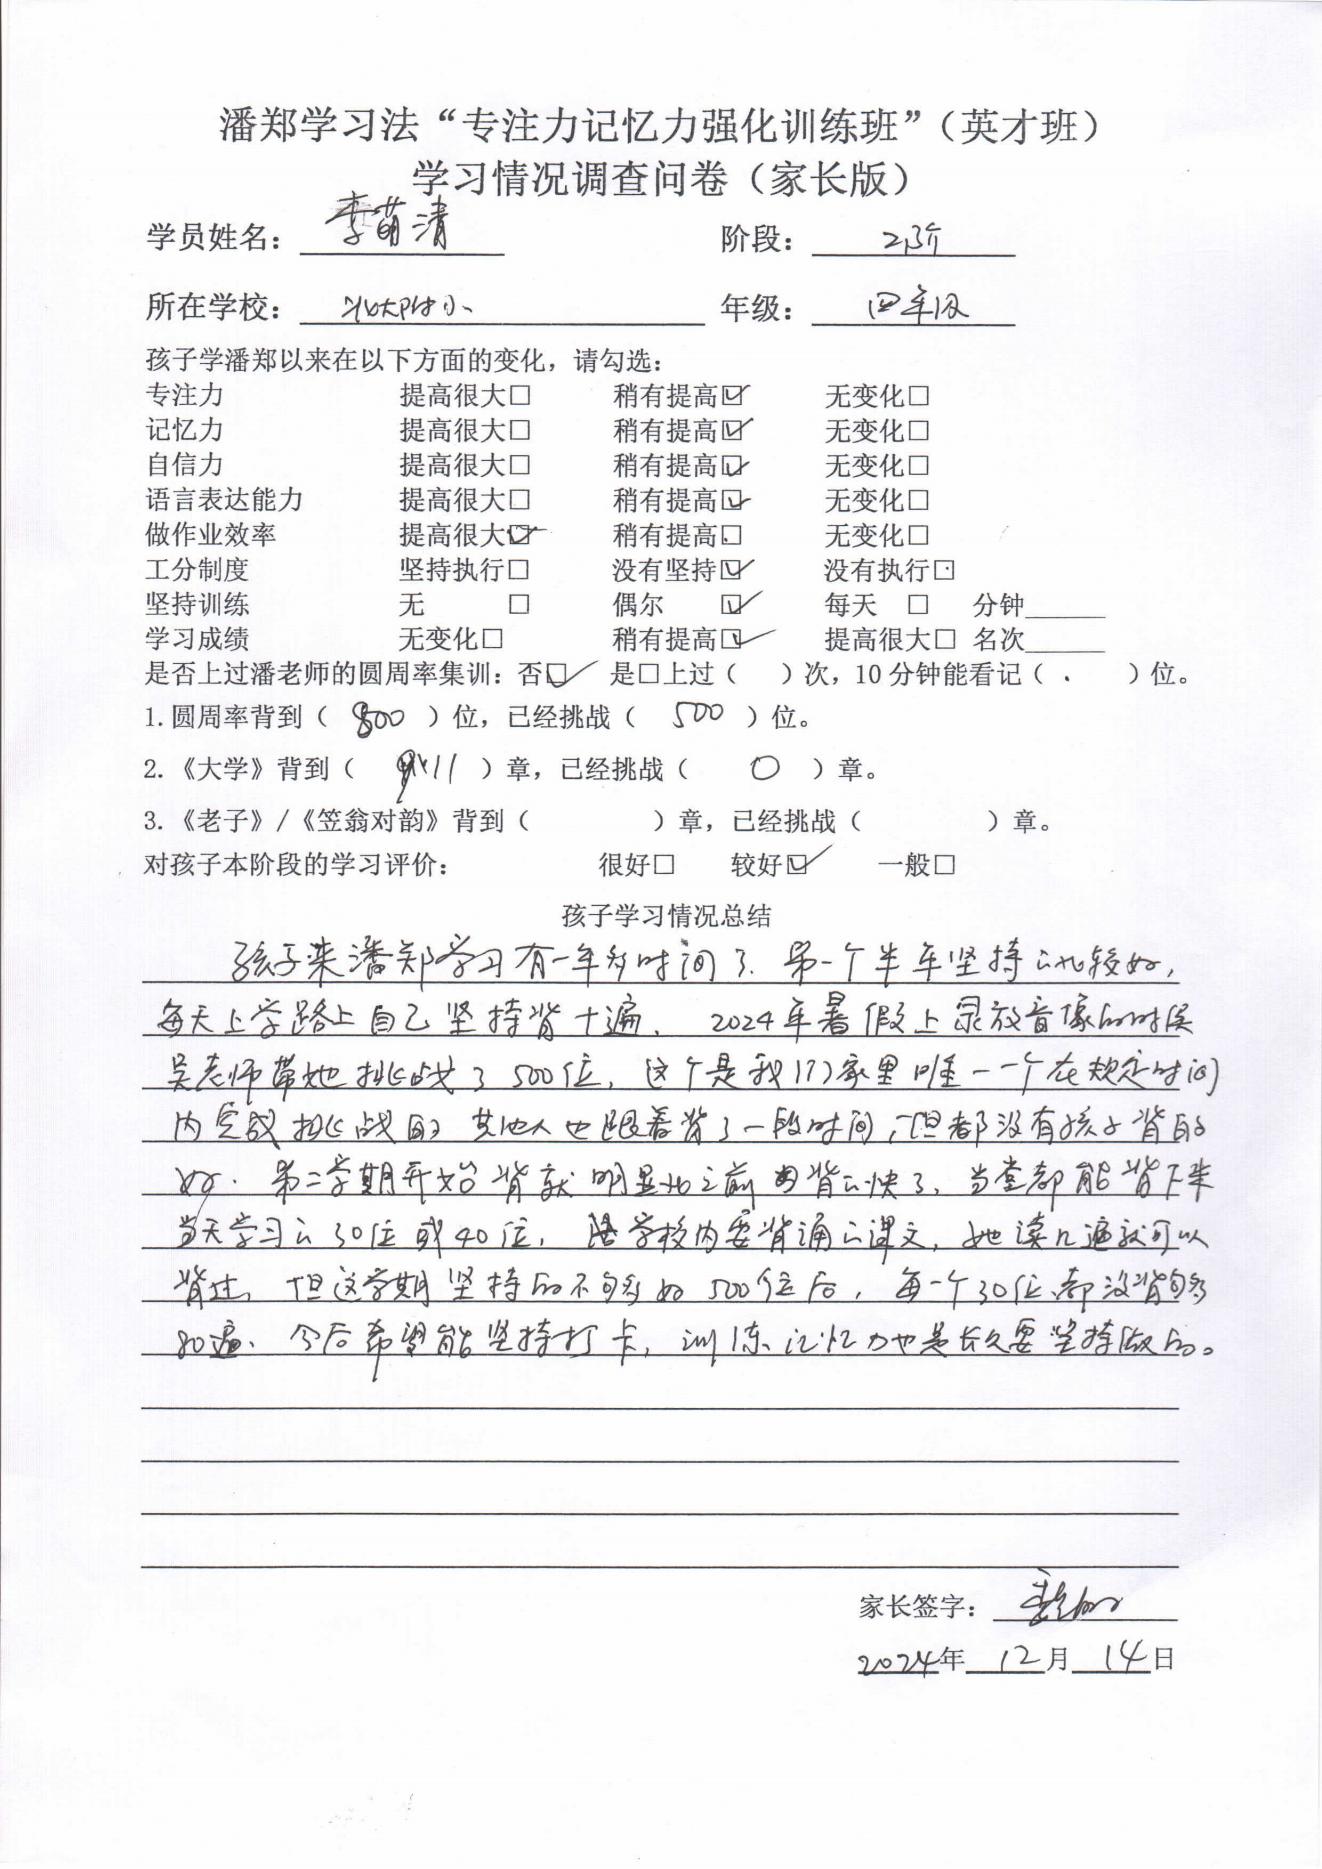 潘郑学习法“专注力记忆力强化训练班”（英才班）
学习情况调查问卷（家长版）
学员姓名：李萌清 阶段：2阶
所在学校：北大附小 年级：四年级
孩子学潘郑以来在以下方面的变化，请勾选：
专注力 提高很大□ 稍有提高☑ 无变化□
记忆力 提高很大□ 稍有提高☑ 无变化□
自信力 提高很大□ 稍有提高☑ 无变化□
语言表达能力 提高很大□ 稍有提高☑ 无变化□
做作业效率 提高很大☑ 稍有提高□ 无变化□
工分制度 坚持执行□ 没有坚持☑ 没有执行□
坚持训练 无 □ 偶尔 ☑ 每天 □ 分钟______
学习成绩 无变化□ 稍有提高☑ 提高很大□ 名次______
是否上过潘老师的圆周率集训：否☑ 是□上过（ ）次，10分钟能看记（ ）位。
1.圆周率背到（ 800 ）位，已经挑战（ 500 ）位。
2.《大学》背到（ 11 ）章，已经挑战（ 0 ）章。
3.《老子》/《笠翁对韵》背到（ ）章，已经挑战（ ）章。
对孩子本阶段的学习评价： 很好□ 较好☑ 一般□
孩子学习情况总结
孩子来潘郑学习有一年多时间了.第一个半年坚持的比较好，
每天上学路上自己坚持背十遍、2024年暑假上录放音像的时候
吴老师带她挑战了500位，这个是我们家里唯一一个在规定时间
内完成挑战的 其他人也跟着背了一段时间，但都没有孩子背的
好.第二学期开始背就明显比之前背的快了、当堂都能背下来
当天学习的30位或40位，学校内要背诵的课文，她读几遍就可以
背过，但这学期坚持的不够好 500位后，每一个30位、都没背够
80遍、今后希望能坚持打卡，训练记忆力也是长久要坚持做的。
家长签字：
2024年 12月 14日